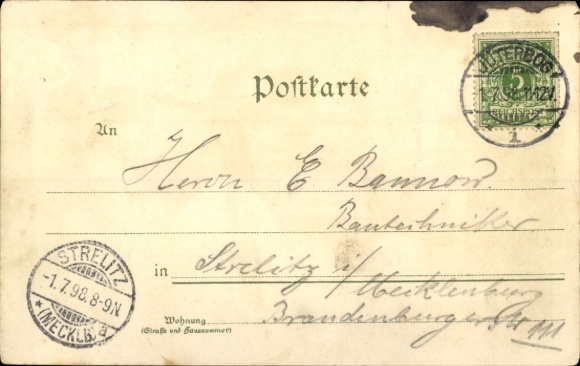 JÜTERBOG
1.7.98.11-12V.
1
5
REICHSPOST
Postkarte
An
Herrn E Bannow.
Bautechniker
in Strelitz i/
Mecklenburg
Wohnung
(Straße und Hausnummer)
Brandenburgerstr 111
STRELITZ
-1.7.98.8-9N.
* (MECKLB.) a